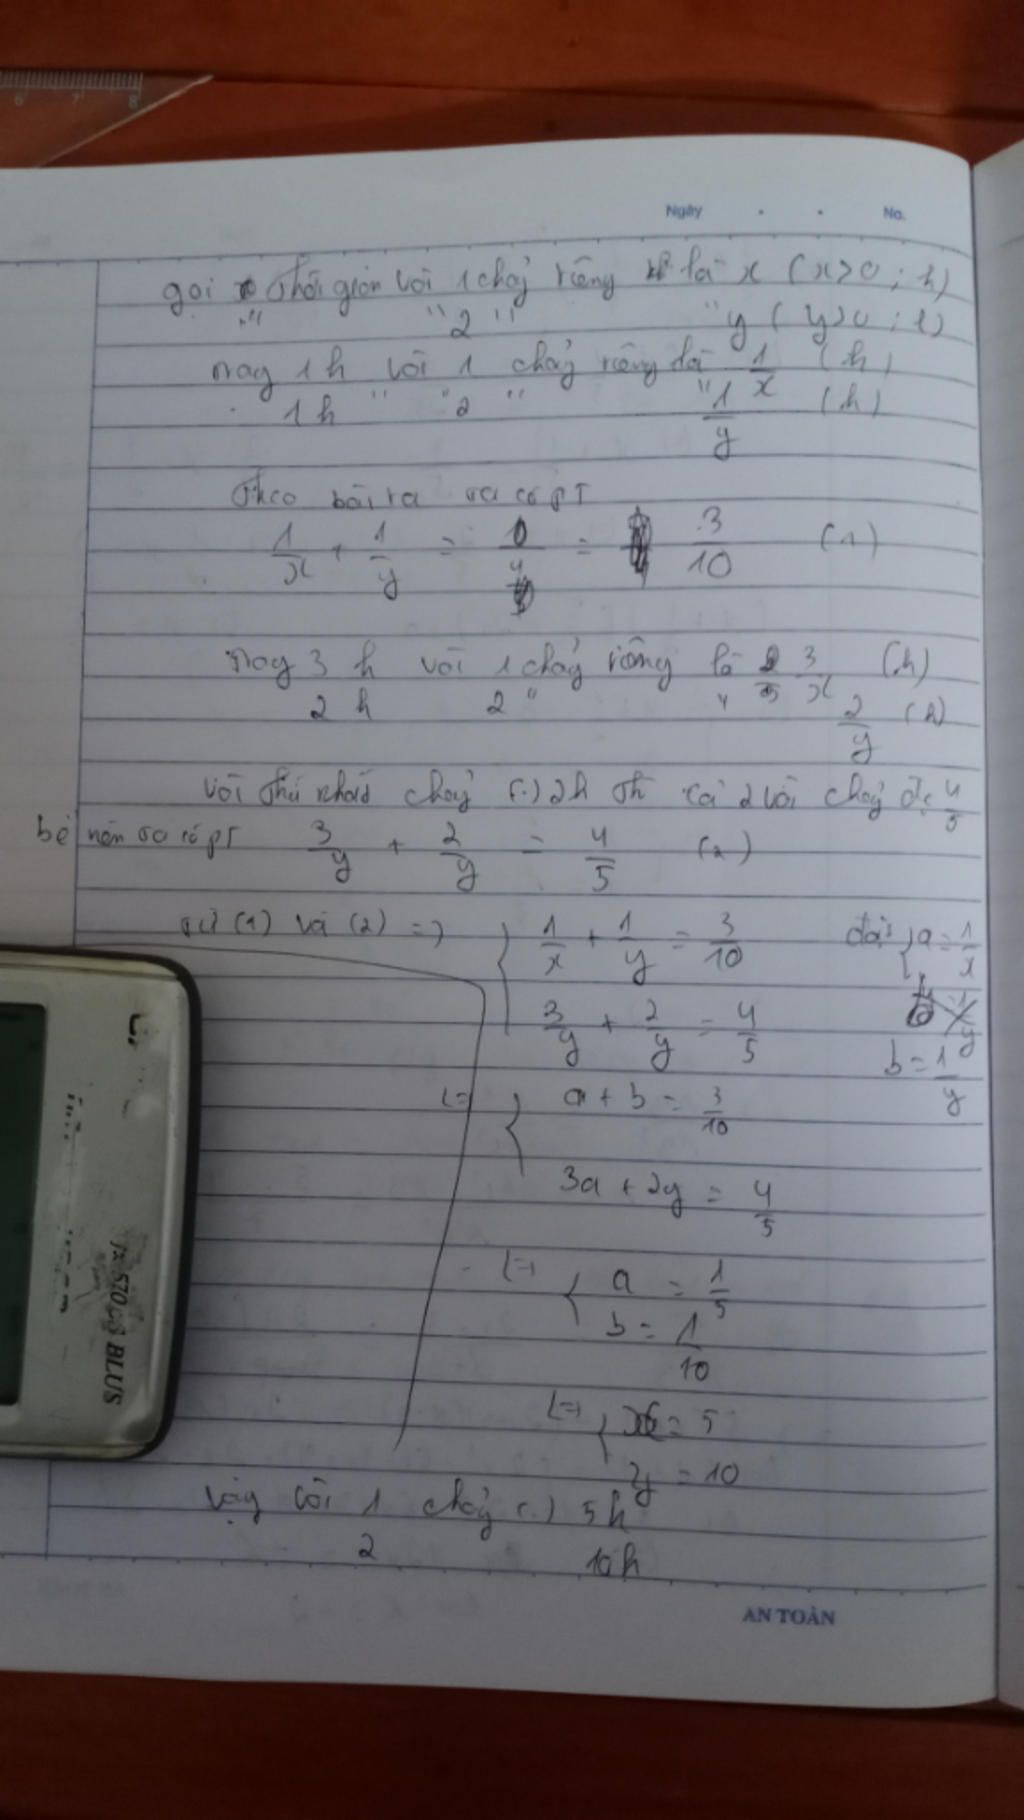 Ngày . . No.
gọi thời gian vòi 1 chảy riêng là x (x>0 ; h)
" " 2 " " y ( y>0 ; h)
1h vòi 1 chảy riêng là 1/x (h)
1h " 2 " " 1/y (h)
Theo bài ra ta có PT
1/x + 1/y = = 3/10 (1)
3 h vòi 1 chảy riêng là 3/x (h)
2 h 2 " " 2/y (h)
Vòi thứ nhất chảy (-) 2h th cả 2 vòi chảy đc 4/5
bể nên ta có pT 3/y + 2/y = 4/5 (2)
từ (1) và (2) =>
{ 1/x + 1/y = 3/10 đặt { a = 1/x
3/y + 2/y = 4/5 b = 1/y
(=) { a + b = 3/10
3a + 2y = 4/5
(=) { a = 1/5
b = 1/10
(=) { x = 5
y = 10
Vậy vòi 1 chảy (-) 5h
2 10h
AN TOÀN
fx-570 BLUS
6 7 8